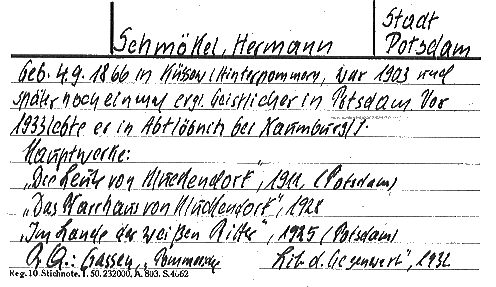 Stadt
Schmökel, Hermann Potsdam
Geb. 4.9.1866 in Küssow/Hinterpommern, war 1903 und
später noch einmal ev. Geistlicher in Potsdam. Vor
1933 lebte er in Abtlöbnitz bei Naumburg/
Hauptwerke:
„Die Leute von Kluckendorf", 1911, (Potsdam)
„Das Pfarrhaus von Kluckendorf", 1928
„Im Lande der weißen Ritter, 1925 (Potsdam)
Gassen, „Pommersche Lit. d. Gegenwart", 1932
Reg. 10 Stichnote. I. 50. 232000. A. 803. S. 4662